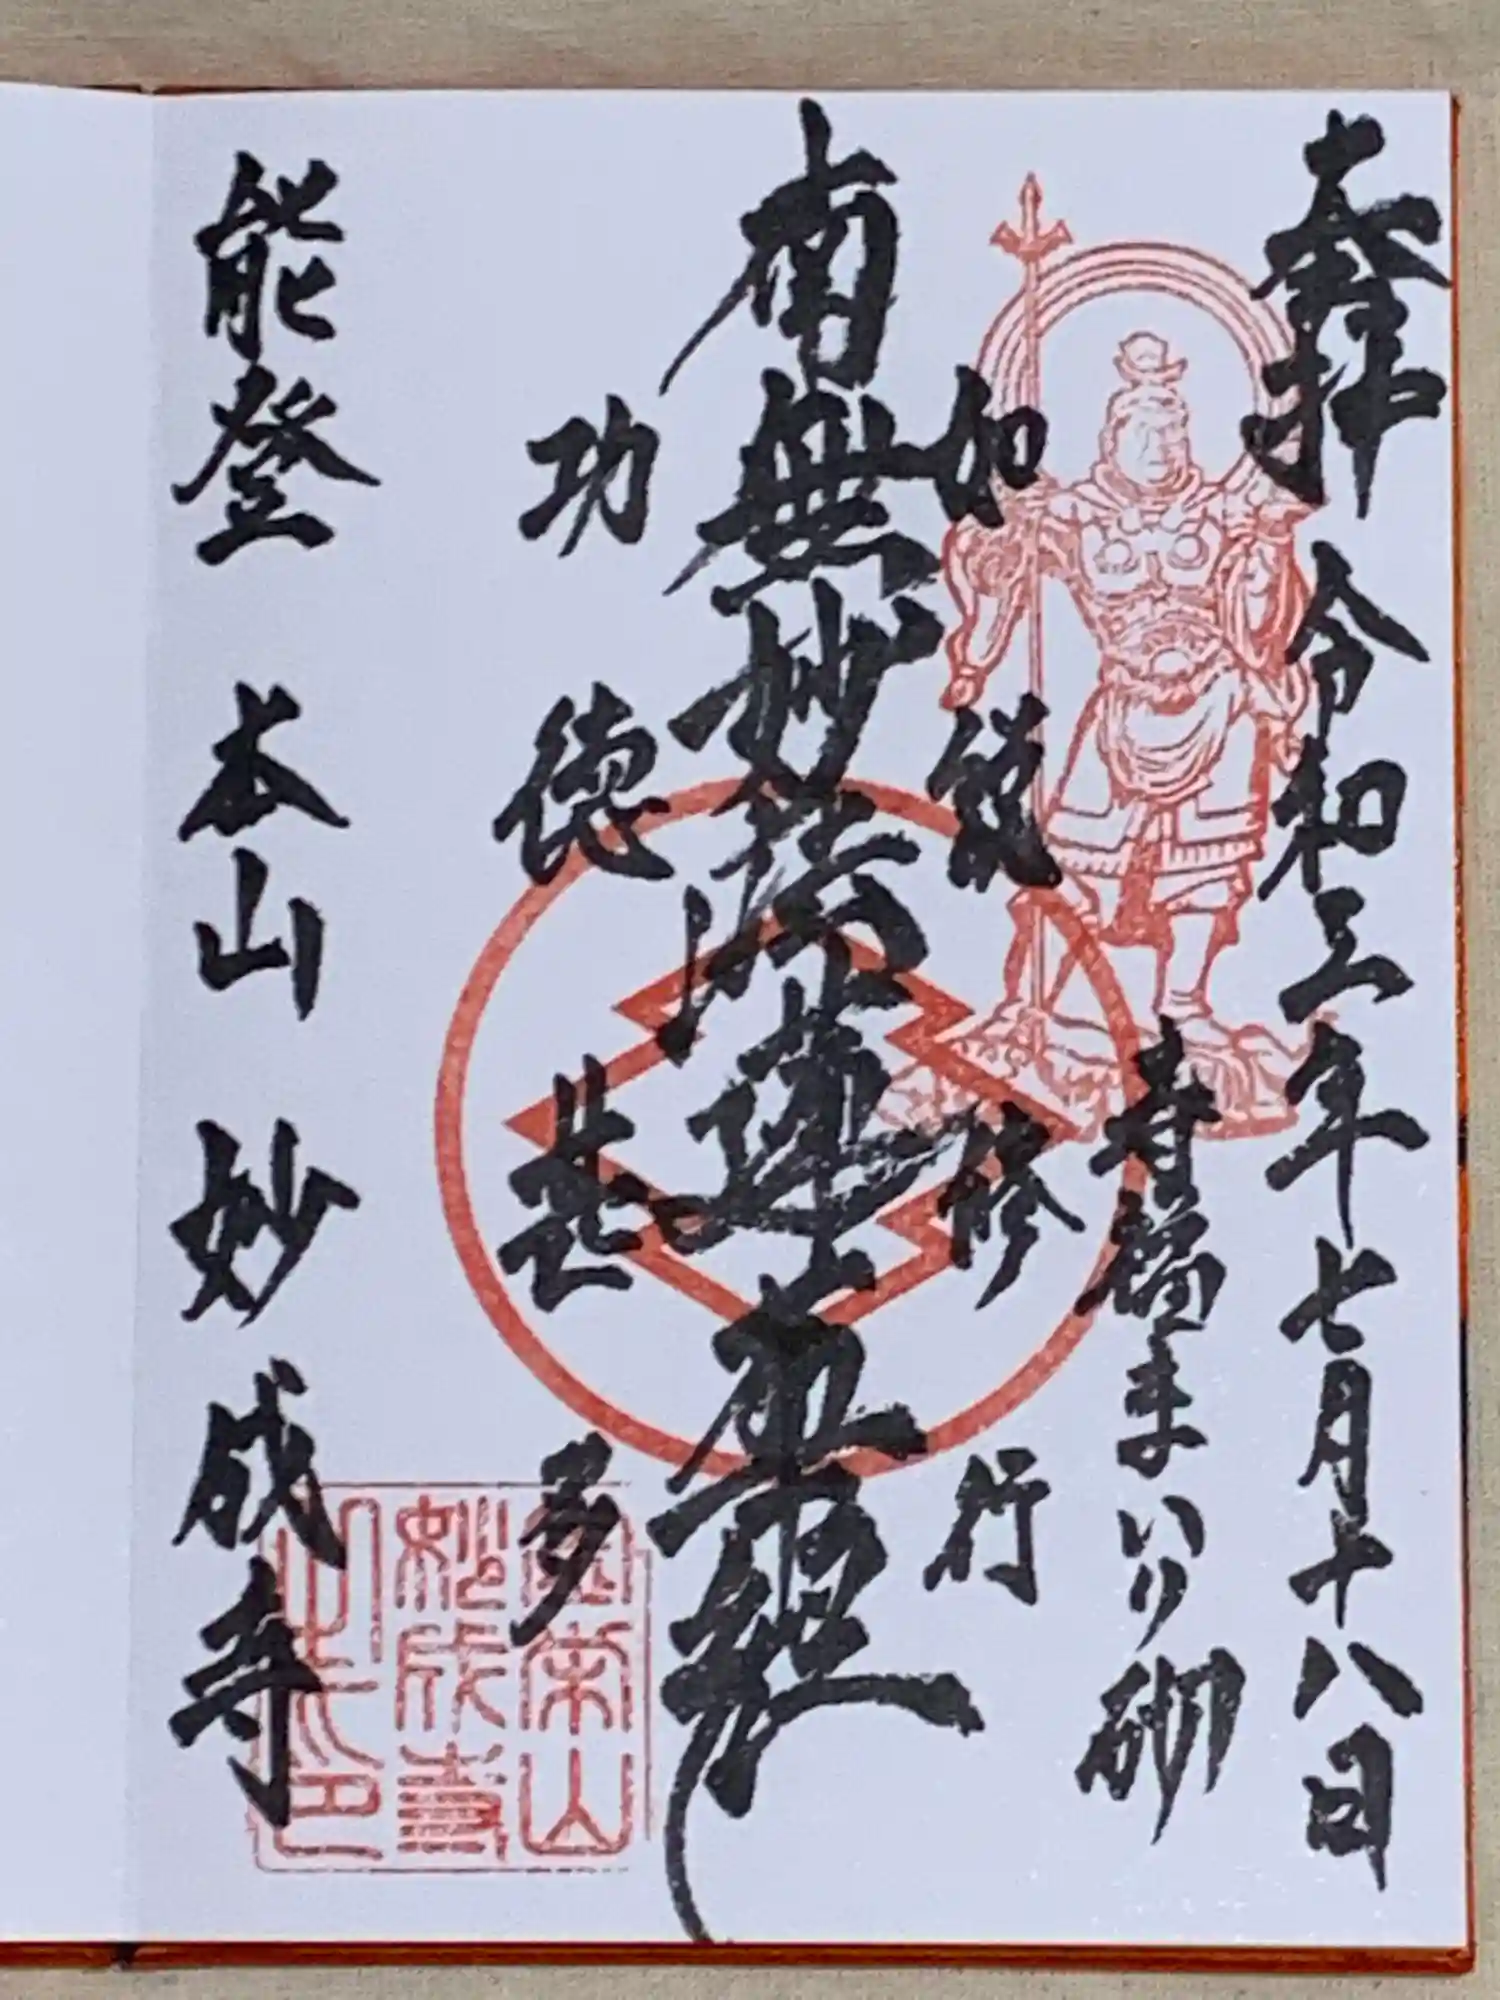 奉拝 令和三年七月十八日
寿福まいり 砌
如説修行
南無妙法蓮華経
功徳甚多
能登 本山 妙成寺
金榮山
妙成寺